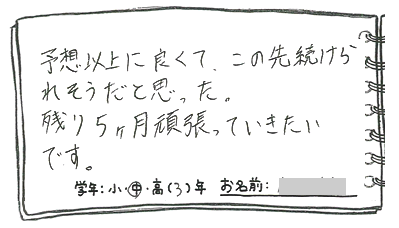 予想以上に良くて、この先続けら
れそうだと思った。
残り5ヶ月頑張っていきたい
です。
学年：小・中・高（3）年 お名前：